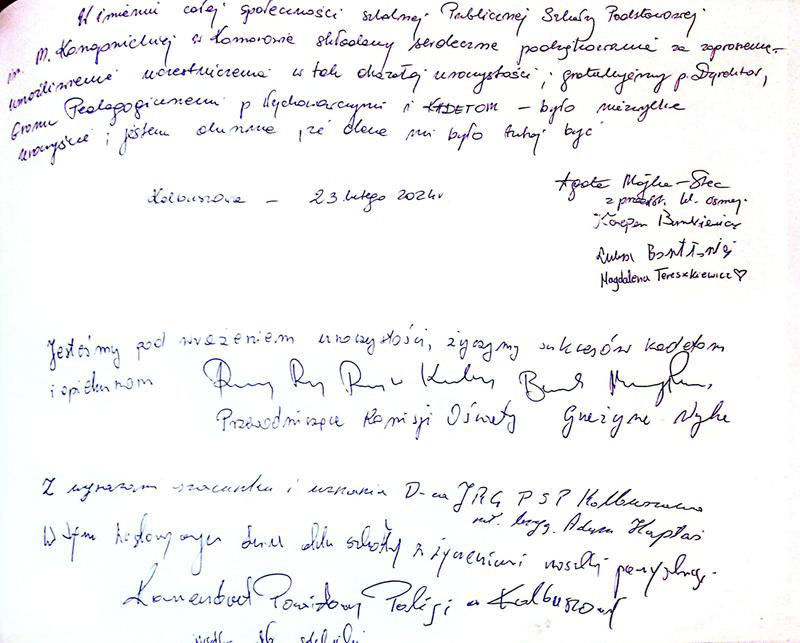 W imieniu całej społeczności szkolnej Publicznej Szkoły Podstawowej
im. M. Konopnickiej w Komorowie składamy serdeczne podziękowania za zaprosze-
umożliwienie uczestniczenia w tak okazałej uroczystości, gratulujemy p. Dyrektor,
Gronu Pedagogicznemu p Wychowawczyni i KADETOM - było niezwykle
uroczyście i jestem dumna, że dane mi było tutaj być
Kolbuszowa - 23 lutego 2024r.
Agata Mojka-Stec
z przedst. kl. ósmej.
Kacper
Łukasz
Magdalena Tereszkiewicz ♡
Jesteśmy pod wrażeniem uroczystości, życzymy sukcesów kadetom
i opiekunom
Przewodnicząca Komisji Oświaty Grażyna
Z wyrazami szacunku i uznania D-ca JRG PSP Kolbuszowa
mł. bryg. Adam Hapłaś
W tym dniu dla szkoły z życzeniami wszelkiej
Komendant Powiatowy Policji w Kolbuszowej